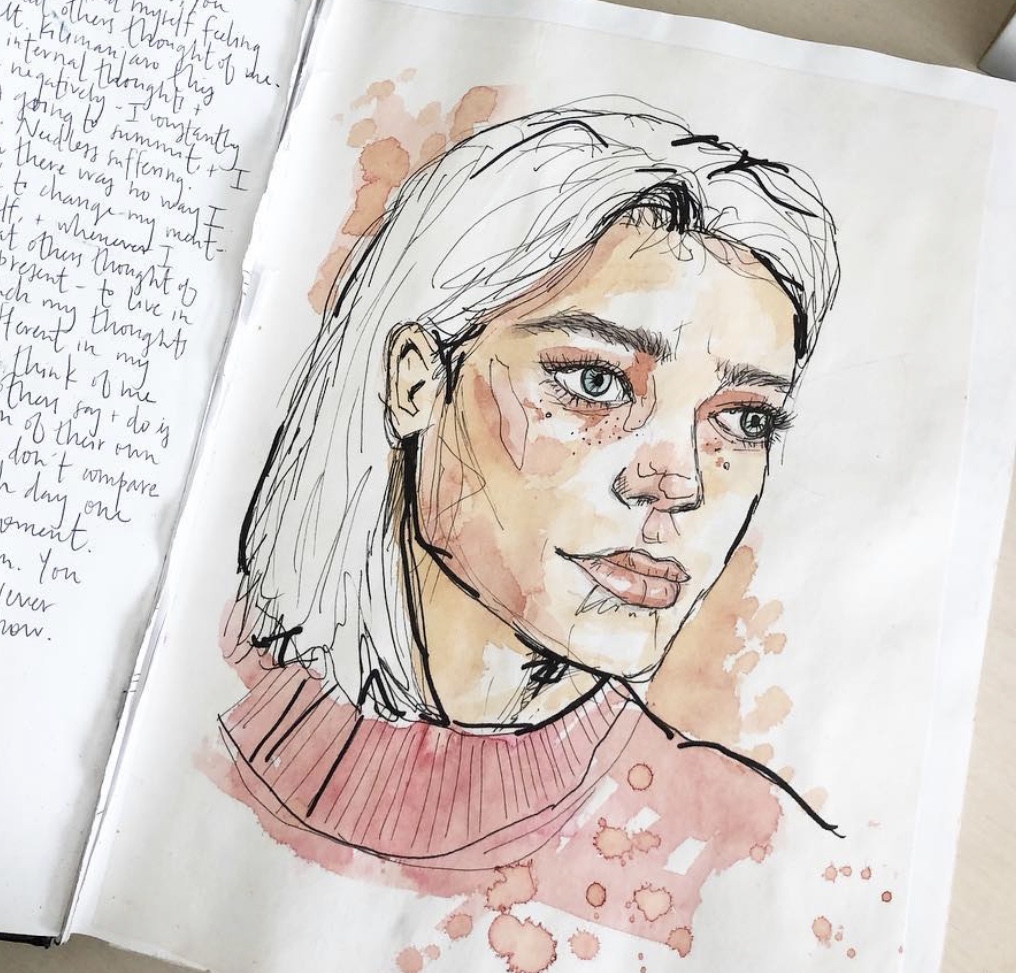 you
myself feeling
others thought of me.
Kilimanjaro they
internal thoughts +
negatively - I constantly
going to summit, + I
Needless suffering.
there was no way I
to change my ment-
+ whenever I
others thought of
present - to live in
my thoughts
in my
think of me
others say + do is
of their own
don't compare
day one
moment.
You
never
now.